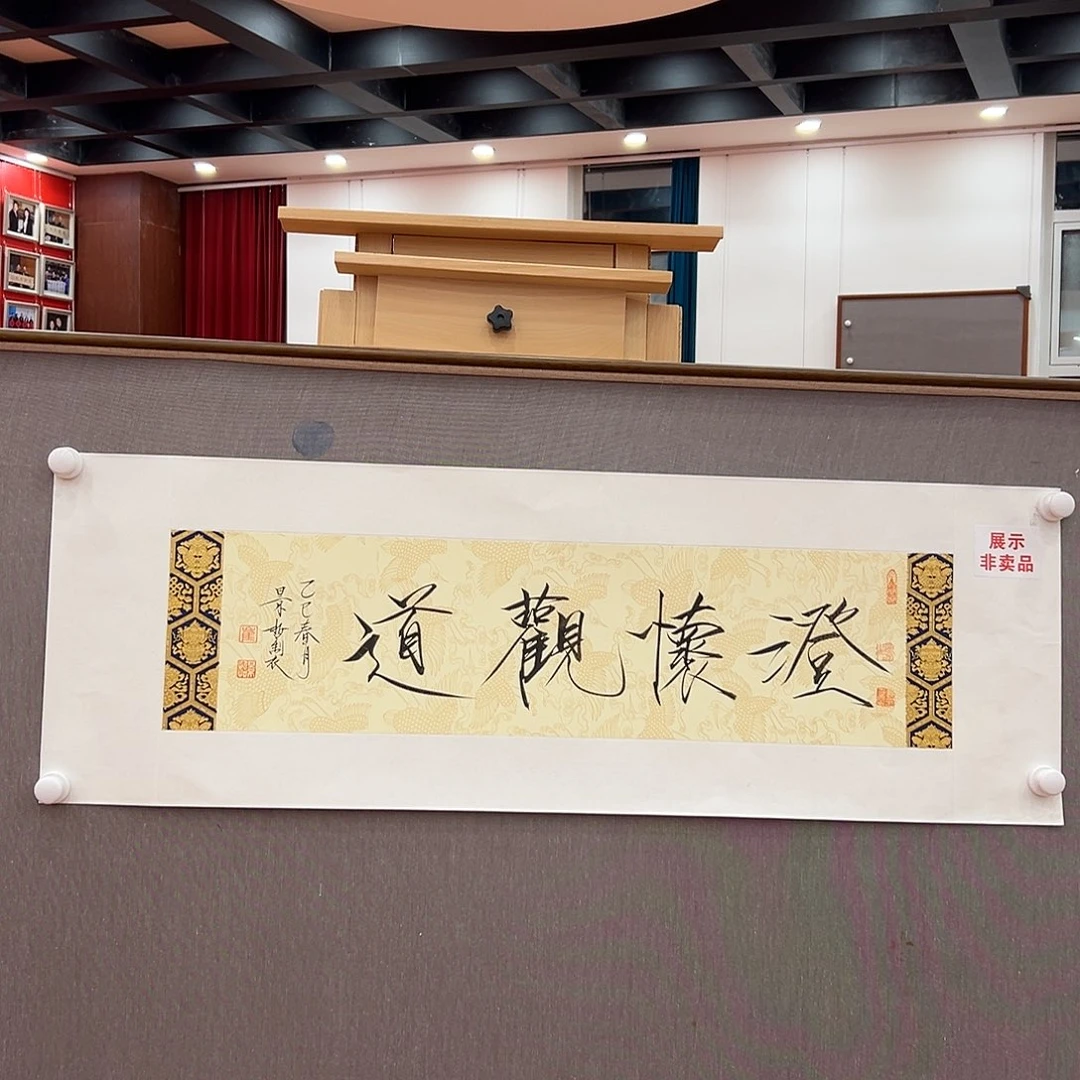 澄懷觀道
乙巳春月
展示
非卖品